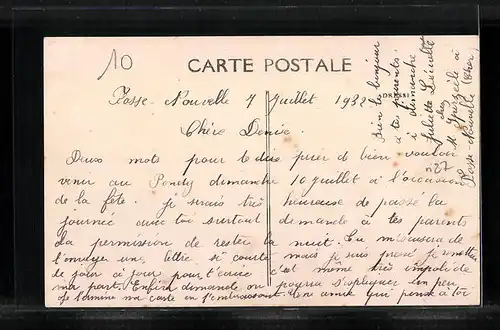 10
CARTE POSTALE
Fosse-Nouvelle 7 Juillet 1932
Chère Denise
Deux mots pour te dire prier de bien vouloir
venir au Pondy dimanche 10 juillet à l'occasion
de la fête. Je serais très heureuse de passé la
journée avec toi surtout demande à tes parents
la permission de rester la nuit. Tu m'excusera de
t'envoyer une lettre si courte mais je suis presé je remettais
de jour à jour pour t'écrire c'est même très impoli de
ma part. Enfin dimanche on pourra s'expliquer un peu
Je termine ma carte en t'embrassant. Ton amie qui pense à toi
Bien le bonjour
à tes parents
à dimanche
Juliette
chez
M
Fosse-Nouvelle (Cher)
n27